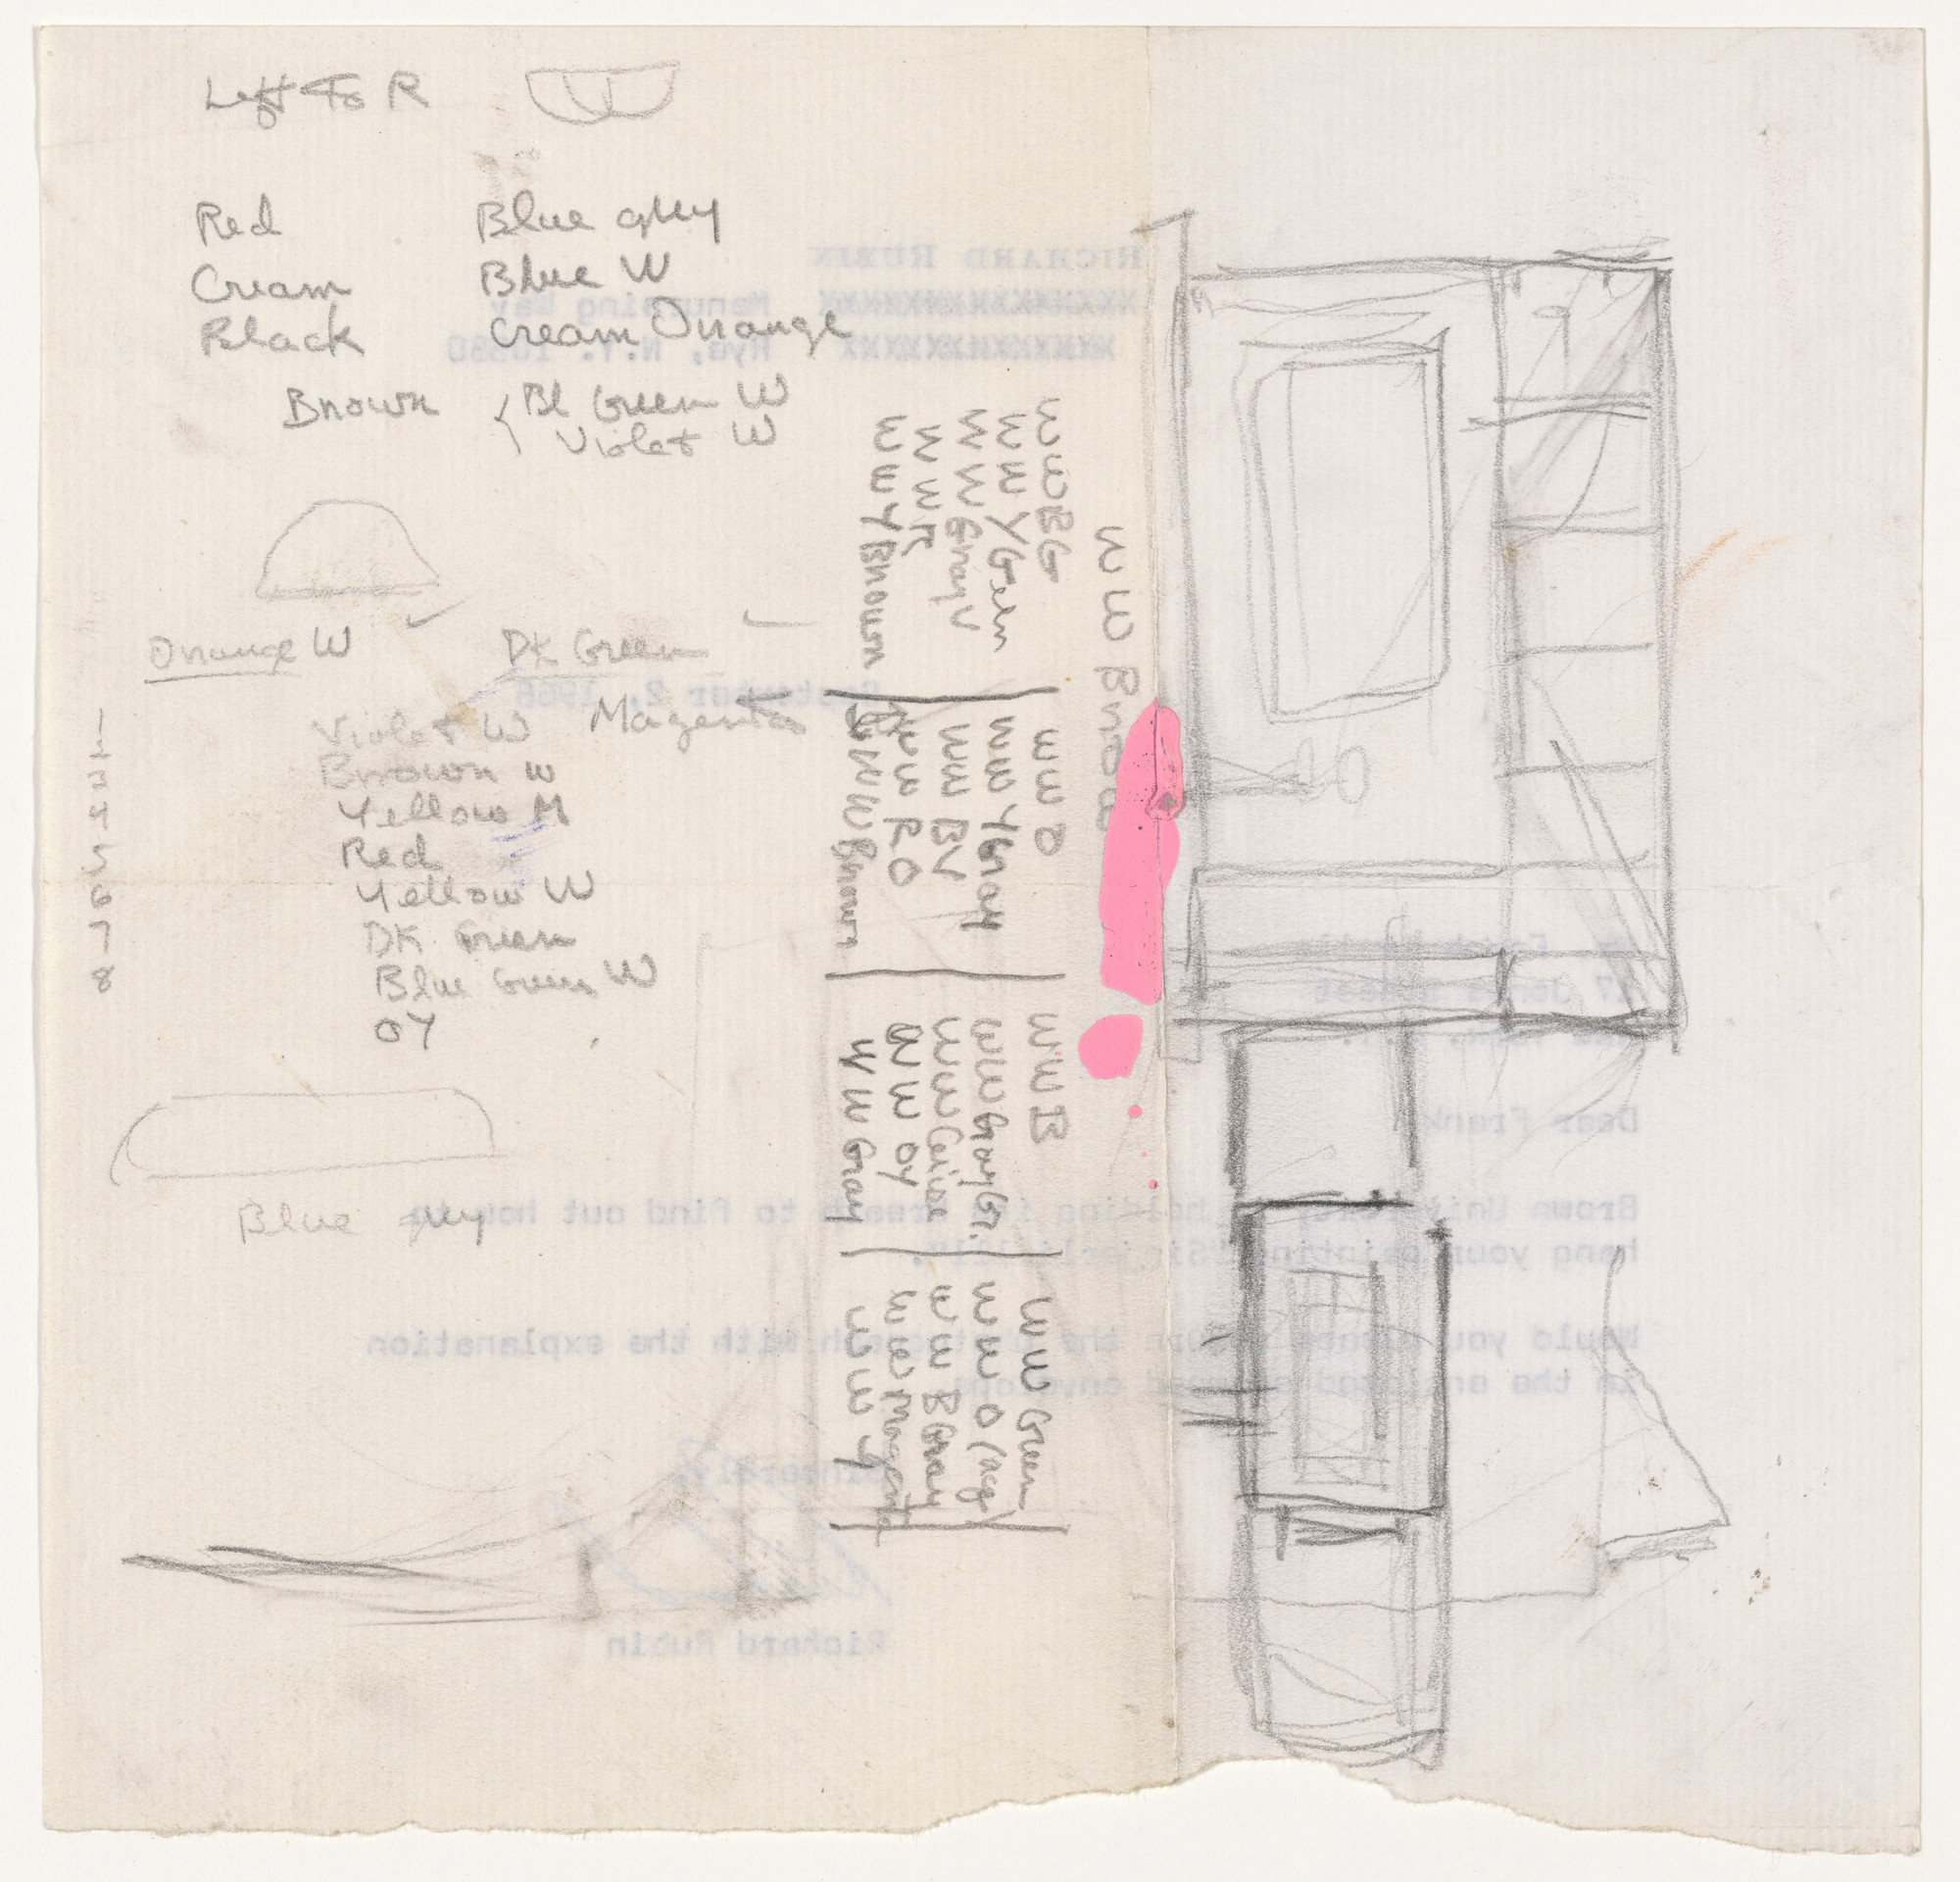 Left To R
Red Blue grey
Cream Blue W
Black Cream Orange
Brown Bl Green W
Violet W
Orange W DK Green
Violet W Magenta
Brown W
Yellow M
Red
Yellow W
DK Green
Blue Green W
OY
1
2
3
4
5
6
7
8
Blue grey
W W
W W BG
W W Y Green
W W Gray V
W W R
W W Y Brown
W W O
W W Y Gray
W W BV
W W RO
W W Brown
W W B
W W Gray Gr.
W W Cerise
W W OY
W W Gray
W W Green
W W O
W W B Gray
W W Magenta
W W Y
RICHARD RUBIN
Manursing Way
Rye, N.Y. 10580
September 2, 1966
Dear Frank
Brown University is holding its breath to find out how to
hang your painting
Would you please return the photograph with the explanation
in the enclosed stamped envelope.
Sincerely,
Richard Rubin